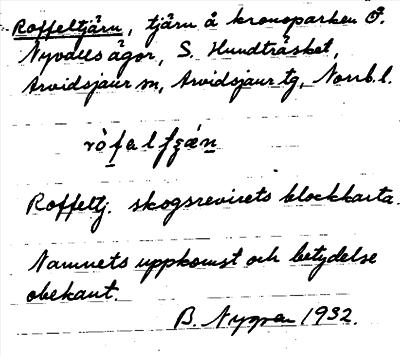 Roffeltjärn, tjärn å kronoparken Ö.
Nyvalls ägor, S. Hundträsket,
Arvidsjaur sn, Arvidsjaur tg, Norrb. l.
Roffeltj. skogsrevirets blockkarta.
Namnets uppkomst och betydelse
obekant.
B. Nygren 1932.